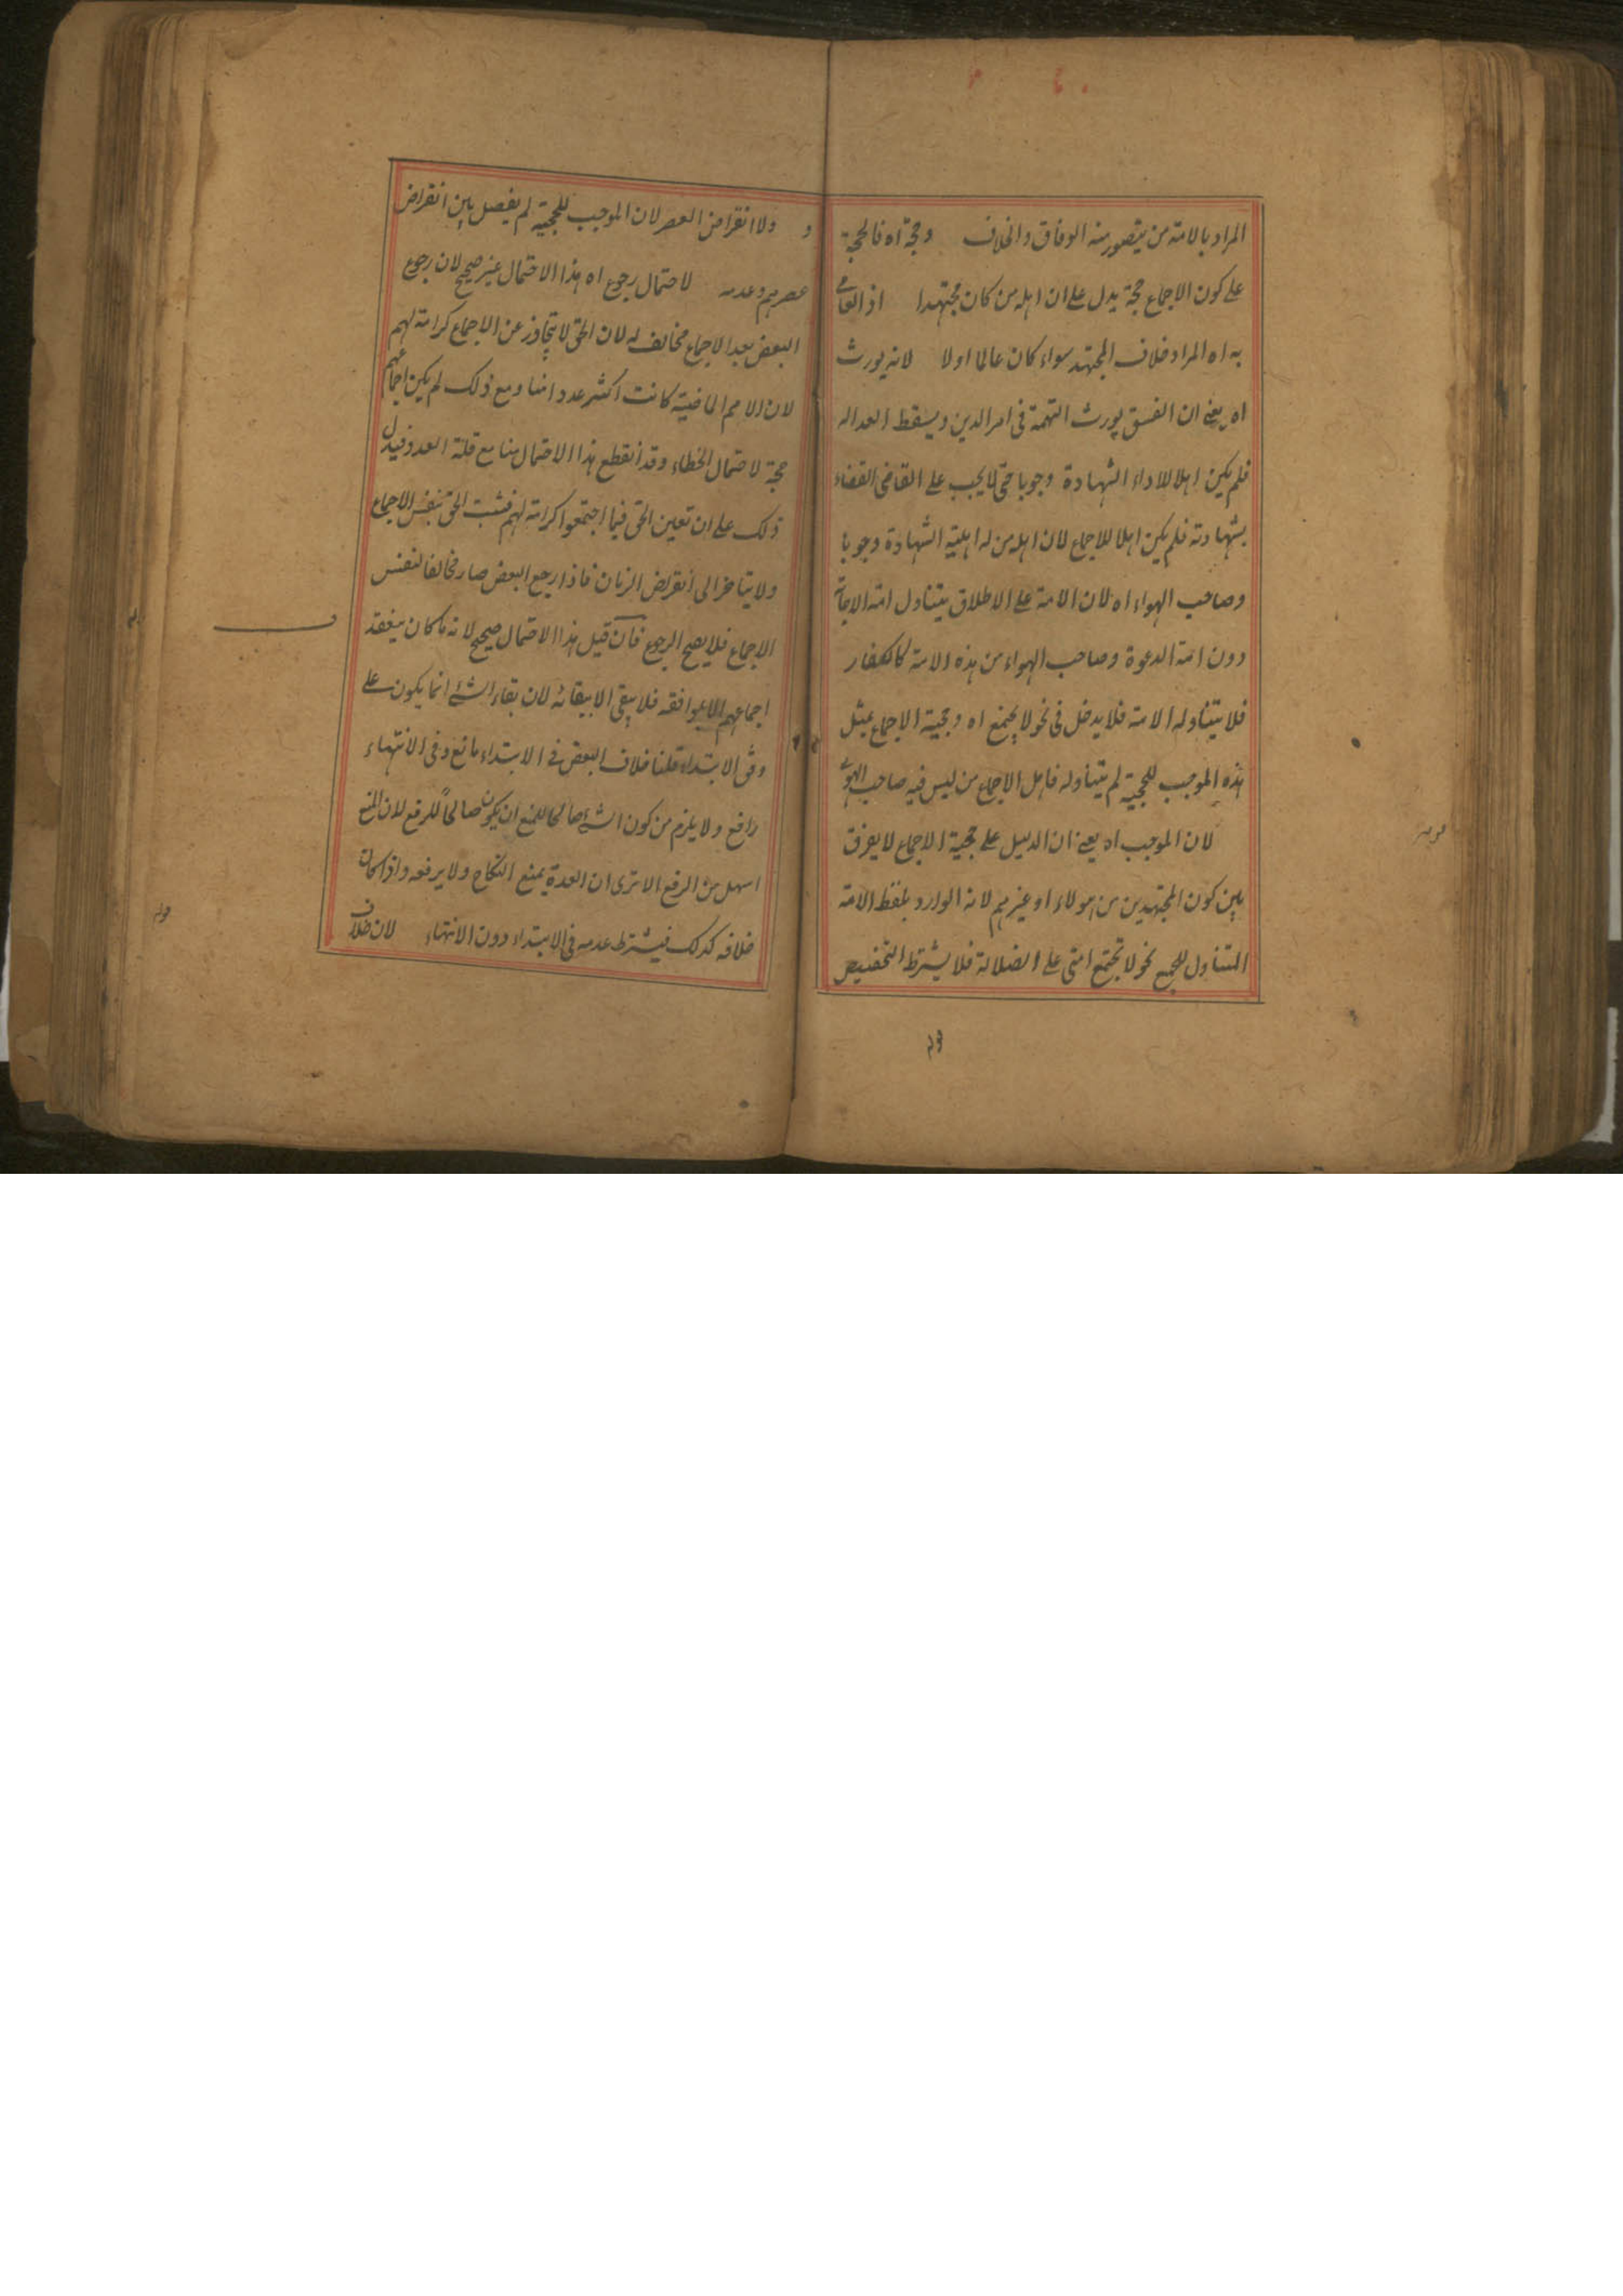 المراد بالامة من يتصور منه الوفاق والخلاف وحجة اه فالحجة
على كون الاجماع حجة يدل على ان اهله من كان مجتهدا اذ العامي
به اه المراد خلاف المجتهد سواء كان عالما اولا لانه يورث
اه يعني ان الفسق يورث التهمة فى امر الدين ويسقط العداله
فلم يكن اهلا لاداء الشهادة وجوبا حتى لا يجب على القاضى القضاء
بشهادته فلم يكن اهلا للاجماع لان اهله من له اهلية الشهادة وجوبا
وصاحب الهواء اه لان الامة على الاطلاق يتناول امة الاجابة
دون امة الدعوة وصاحب الهواء من هذه الامة كالكفار
فلا يتناوله الامة فلا يدخل فى نحو لا يجتمع اه وحجية الاجماع بمثل
هذه الموجب للحجية لم يتناوله فاهل الاجماع من ليس فيه صاحب الهواء
لان الموجب اه يعني ان الدليل على حجية الاجماع لا يفرق
بين كون المجتهدين من هولاء او غيرهم لانه الوارد بلفظ الامة
المتناول للجميع نحو لا تجتمع امتى على الضلالة فلا يشترط التخصيص
ولا انقراض العصر لان الموجب للحجية لم يفصل بين انقراض
عصرهم وعدمه لاحتمال رجوع اه هذا الاحتمال غير صحيح لان رجوع
البعض بعد الاجماع مخالف له لان الحق لا يتجاوز عن الاجماع كرامة لهم
لان الامم الماضية كانت اكثر عددا منا ومع ذلك لم يكن اجماعهم
حجة لاحتمال الخطاء وقد انقطع هذا الاحتمال هنا مع قلة العدد فيدل
ذلك على ان تعين الحق فيما اجتمعوا كرامة لهم فثبت الحق بنفس الاجماع
ولا يتاخر الى انقراض الزمان فاذا رجع البعض صار مخالفا لنفس
الاجماع فلا يصح الرجوع فان قيل هذا الاحتمال صحيح لانه ما كان ينعقد
اجماعهم الا بموافقه فلا يبقى الا ببقائه لان بقاء الشئ انما يكون على
وفق الابتداء قلنا خلاف البعض فى الابتداء مانع وفى الانتهاء
رافع ولا يلزم من كون الشئ صالحا للمنع ان يكون صالحاً للرفع لان المنع
اسهل من الرفع الا ترى ان العدة يمنع النكاح ولا يرفعه واذا كان
خلافه كذلك فيشترط عدمه فى الابتداء دون الانتهاء لان خلاف